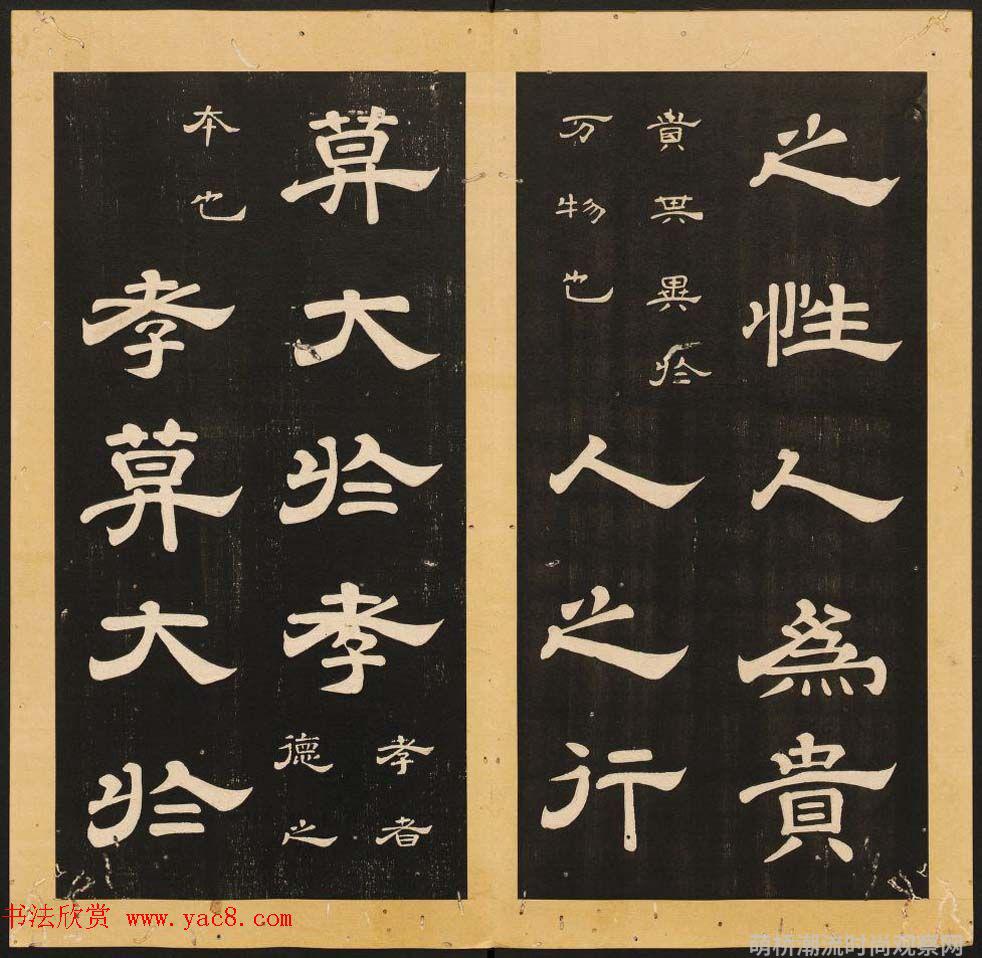 之性人為貴
貴其異於
万物也
人之行
莫大於孝
孝者
德之
本也
孝莫大於
书法欣赏 www.yac8.com
萌桥潮流时尚观察网